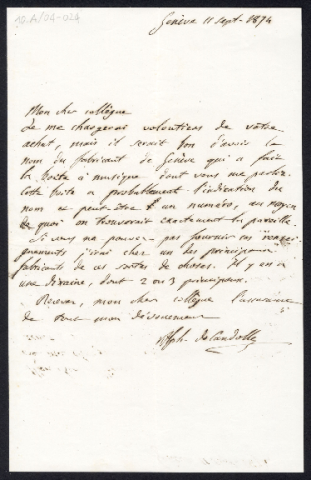 10.A/04-024
Genève 11 sept. 1874
Mon cher collègue
Je me chargerai volontiers de votre
achat, mais il serait bon d'avoir le
nom du fabricant de Genève qui a fait
la boite à musique dont vous me parlez.
Cette boite a probablement l'indication du
nom et peut être un numero, au moyen
de quoi on trouverait exactement la pareille.
Si vous ne pouvez pas fournir ces rensei-
gnements j'irai chez un des principaux
fabricants de ces sortes de choses. Il y en a
une dizaine, dont 2 ou 3 principaux.
Recevez, mon cher collègue l'assurance
de tout mon dévouement
Alph. de Candolle